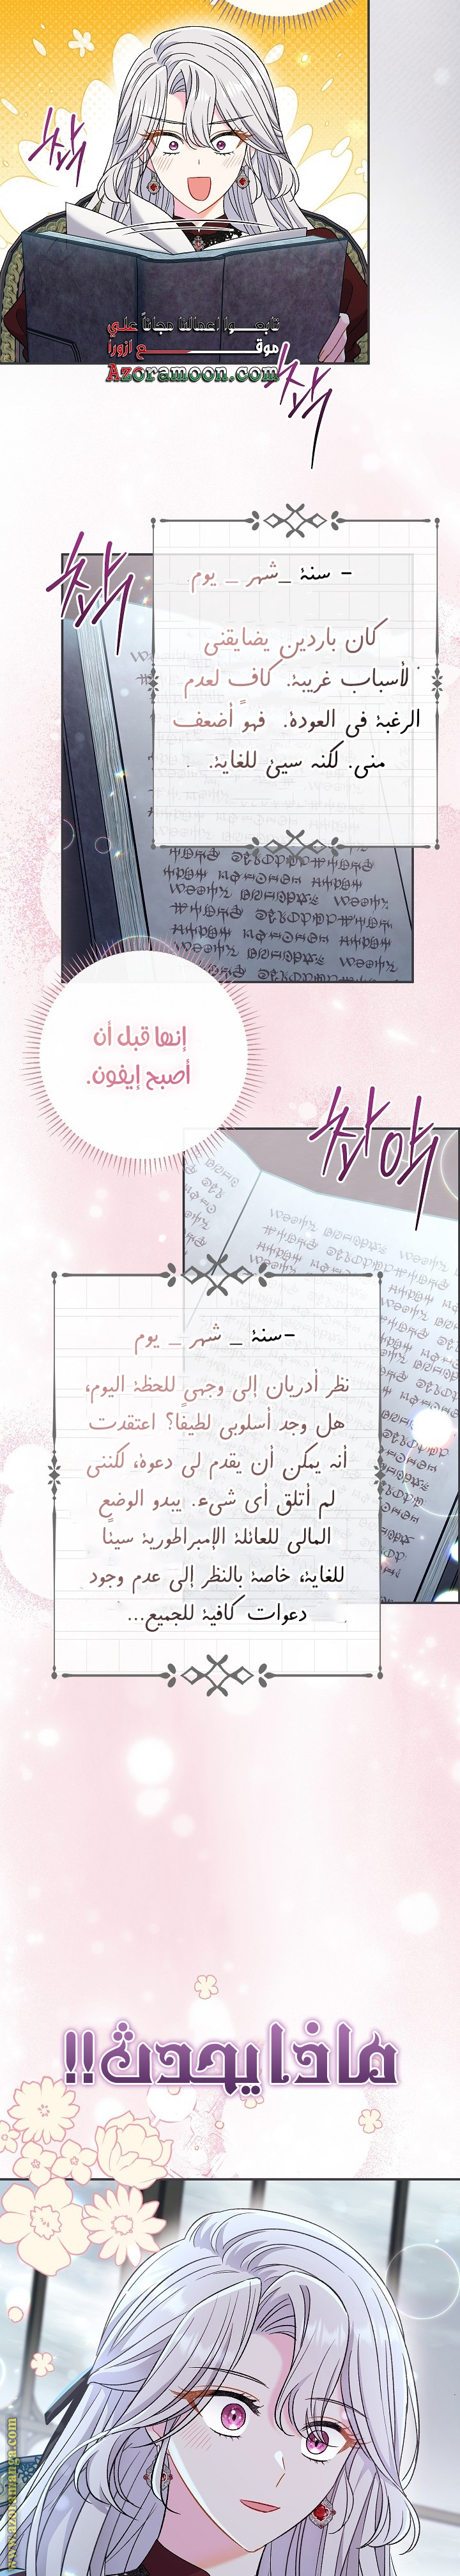 착
تابعـــوا أعمالنا مجاناً علي
موقـــــــع ازورا
Azoramoon.com
착
착
- سنة _شهر _ يوم.
كان باردين يضايقني
لأسباب غريبة. كاف لعدم
الرغبة في العودة. فهو أضعف
مني. لكنه سيئ للغاية.
إنها قبل أن
أصبح إيفون.
-سنة _ شهر _ يوم
نظر أدريان إلى وجهي للحظة اليوم،
هل وجد أسلوبي لطيفًا؟ اعتقدت
أنه يمكن أن يقدم لي دعوة، لكنني
لم أتلق أي شيء. يبدو الوضع
المالي للعائلة الإمبراطورية سيئًا
للغاية، خاصة بالنظر إلى عدم وجود
دعوات كافية للجميع...
ماذا يحدث!!
www.azoramanga.com